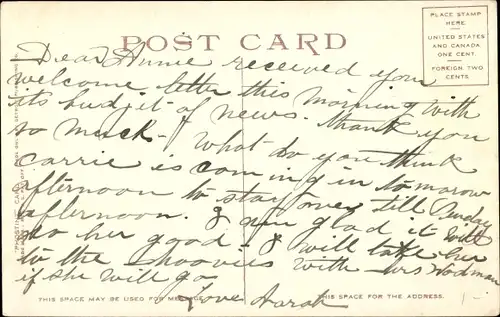 POST CARD
PLACE STAMP
HERE
UNITED STATES
AND CANADA
ONE CENT.
FOREIGN TWO
CENTS
Dear Annie received your
welcome letter this morning with
its budjit of news. Thank you
so much - What do you think
Carrie is coming in tomarow
afternoon to stay over till Sunday
afternoon. I am glad it will
do her good - I will take her
to the with Mrs
if she will go
Love Sarah
THIS SPACE MAY BE USED FOR MESSAGE
THIS SPACE FOR THE ADDRESS.